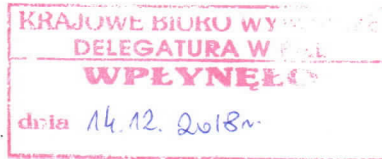 KRAJOWE BIURO
DELEGATURA W
WPŁYNĘŁO
dnia 14.12.2018r.